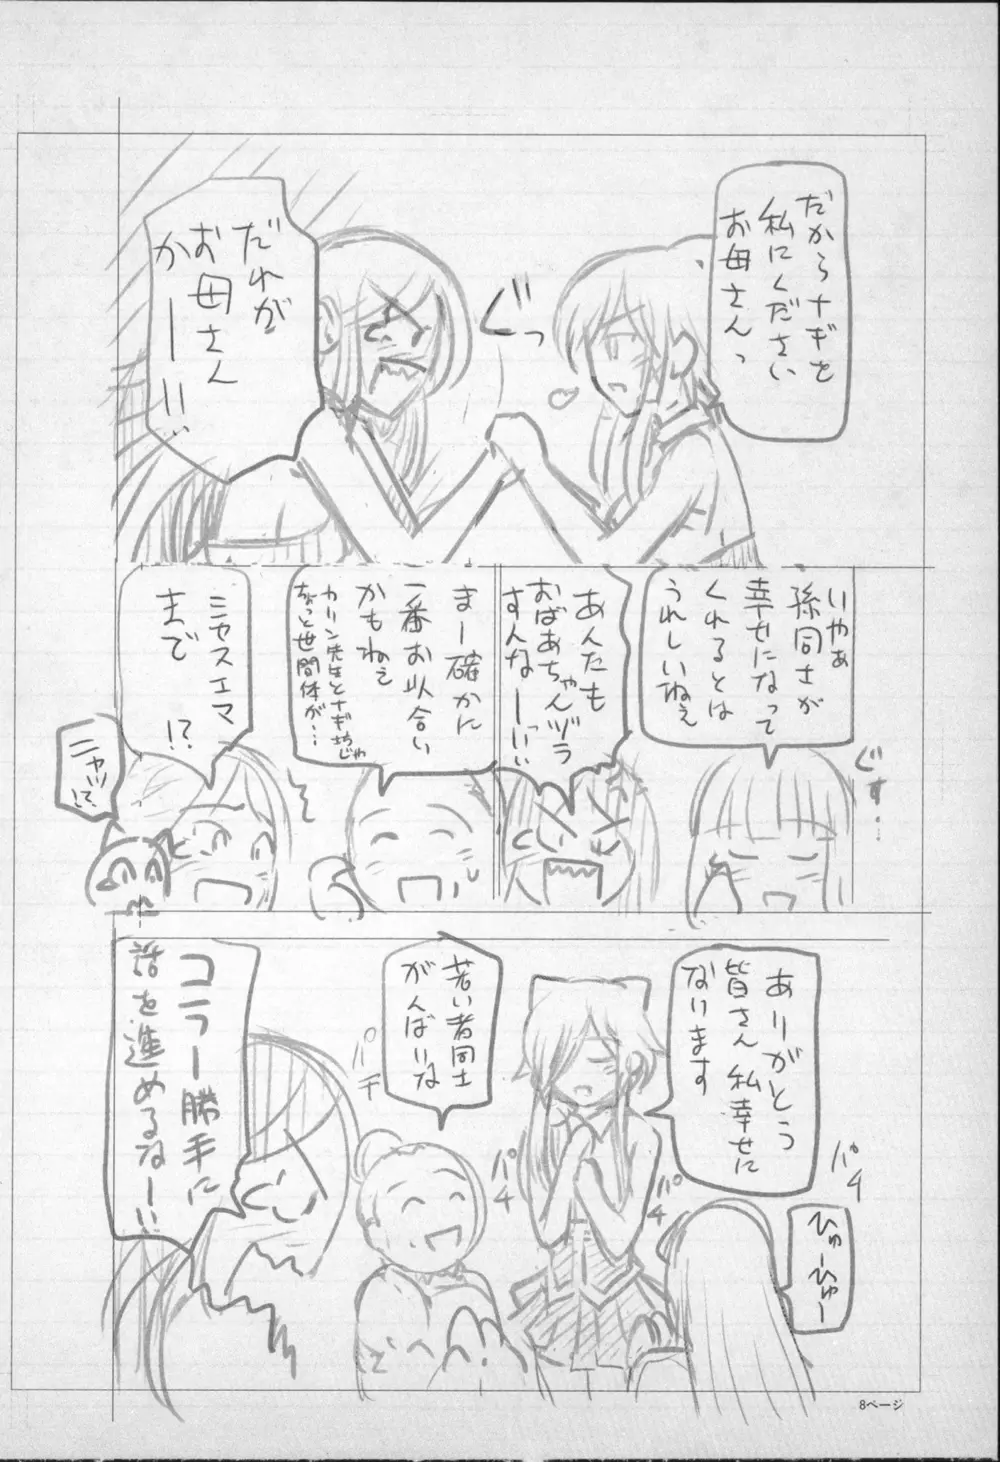 だからナギを
私にください
お母さんっ
ぐっ
だれが
お母さん
かー!!
いやぁ
孫同士が
幸せになって
くれるとは
うれしいねぇ
ぐす…
あんたも
おばあちゃんヅラ
すんなーっ!!
まー確かに
一番お似合い
かもねぇ
カリン先生とナギちゃんじゃ
ちょっと世間体が…
ミヤスエマ
まで
!?
ニャッ!?
ありがとう
皆さん私幸せに
なります
若い者同士
がんばりな
パチ
パチ
パチ
パチ
ひゅーひゅー
コラー勝手に
話を進めるなー!!
8ページ